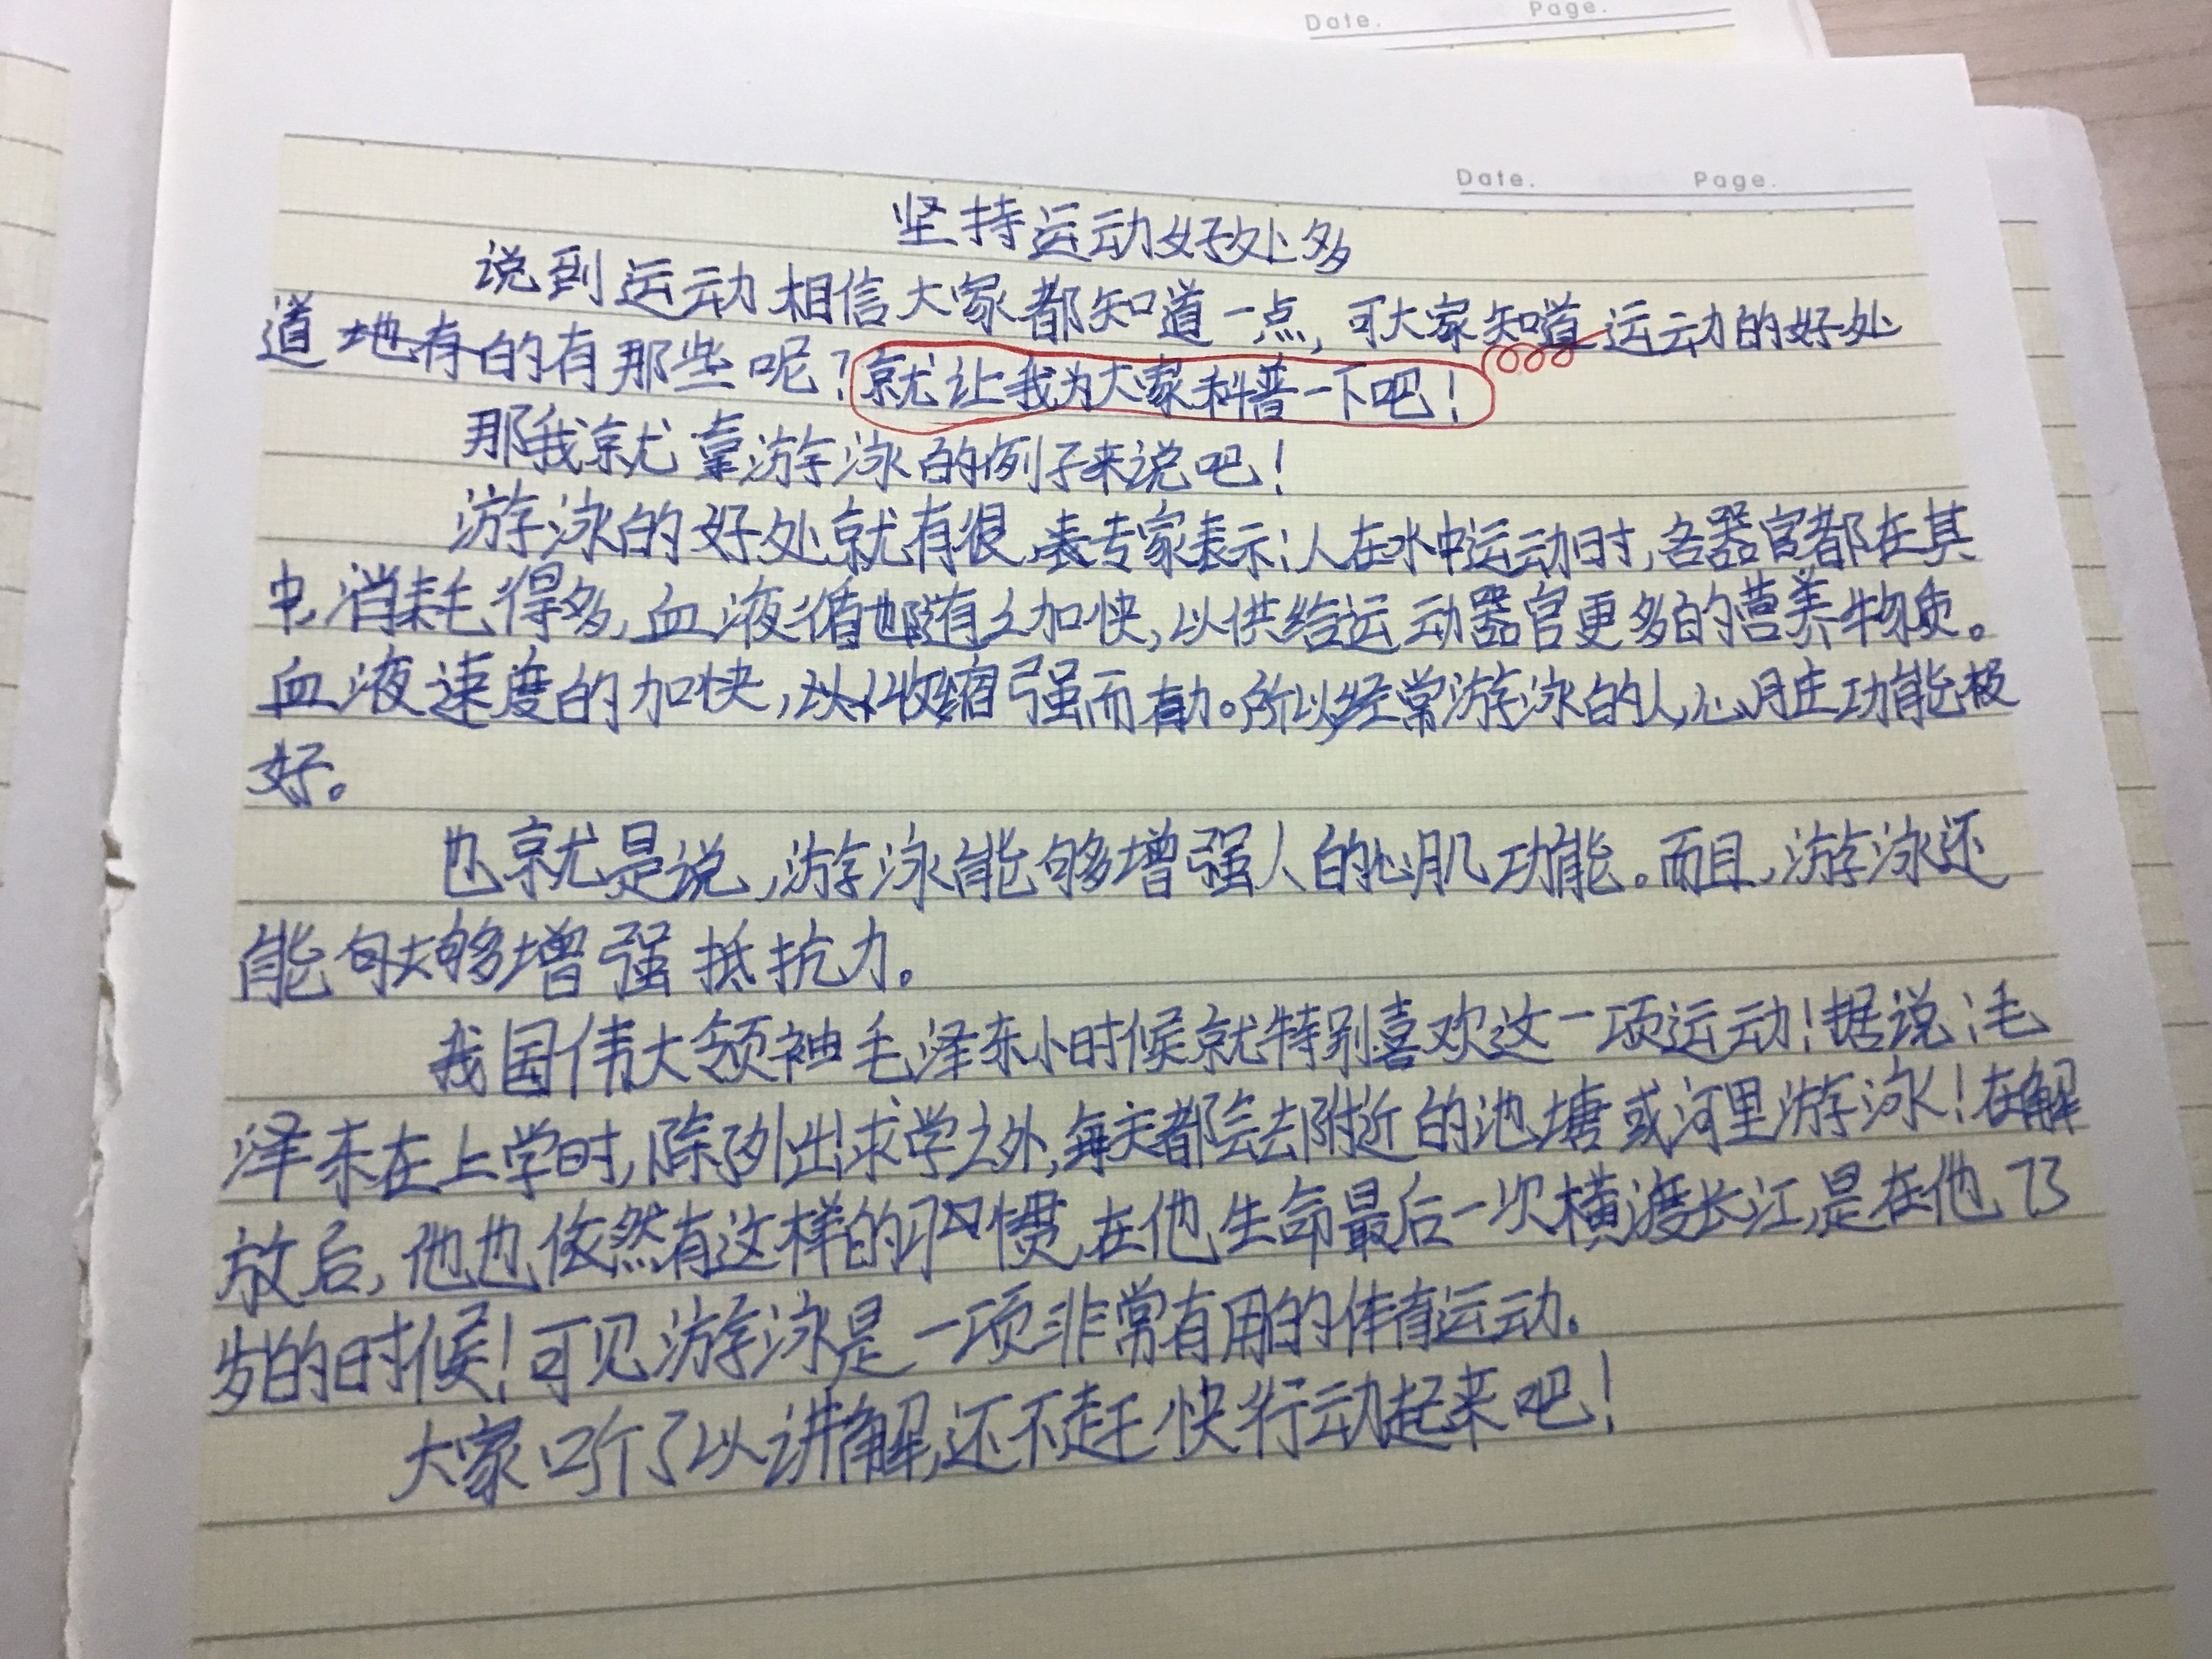 Date. Page.
Date. Page.
坚持运动好处多
说到运动相信大家都知道一点,可大家知道运动的好处
道地有的有那些呢?就让我为大家科普一下吧!
那我就拿游泳的例子来说吧!
游泳的好处就有很,表专家表示:人在水中运动时,各器官都在其
中,消耗得多,血液循也随有之加快,以供给运动器官更多的营养物质。
血液速度的加快,以收缩强而有力。所以经常游泳的人,心脏功能极
好。
也就是说,游泳能够增强人的心肌功能。而且,游泳还
能够增强抵抗力。
我国伟大领袖毛泽东小时候就特别喜欢这一项运动!据说:毛
泽东在上学时,除了外出求学之外,每天都会去附近的池塘或河里游泳!在解
放后,他也依然有这样的习惯,在他生命最后一次横渡长江,是在他73
岁的时候!可见游泳是一项非常有用的体育运动。
大家听了以讲解,还不赶快行动起来吧!